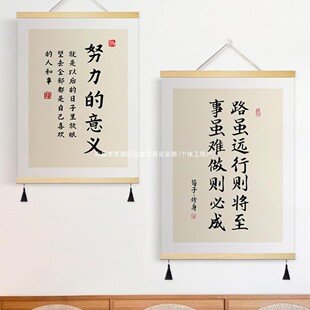 努力的意义
就是以后的日子里放眼
望去全部都是自己喜欢
的人和事
路虽远行则将至
事虽难做则必成
荀子·修身